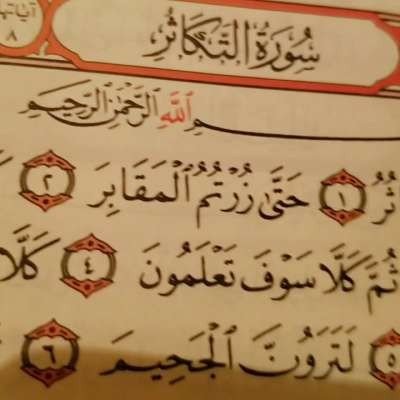 آياتها ٨
سُورَةُ التَّكَاثُرِ
ـمِ اللَّهِ الرَّحْمَٰنِ الرَّحِيمِ
ـاثُرُ ١ حَتَّىٰ زُرْتُمُ ٱلْمَقَابِرَ ٢
ثُمَّ كَلَّا سَوْفَ تَعْلَمُونَ ٤ كَلَّا
٥ لَتَرَوُنَّ ٱلْجَحِيمَ ٦